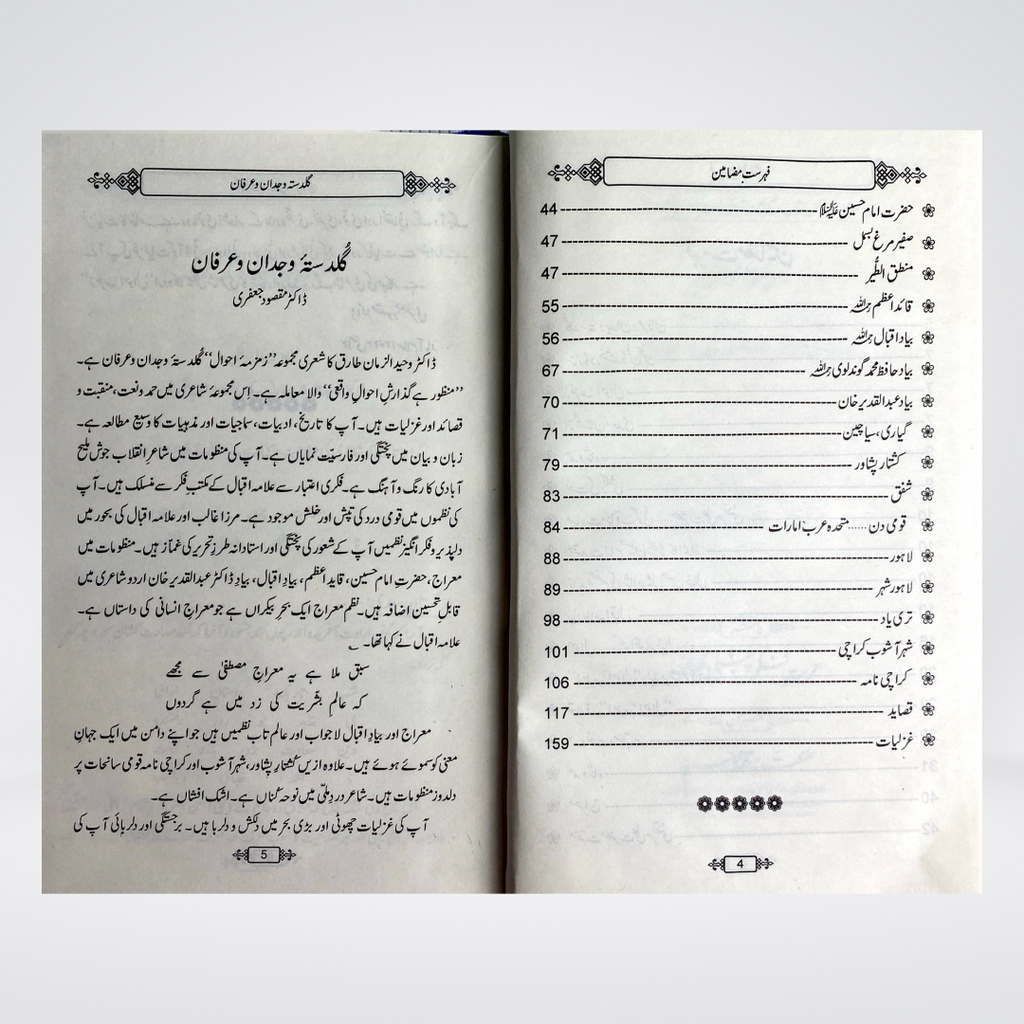 فہرست مضامین
حضرت امام حسین علیہ السلام 44
صفیر مرغ بسمل 47
منطق الطُّیر 47
قائد اعظم رحمہ اللہ 55
بیاد اقبال رحمہ اللہ 56
بیاد حافظ محمد گوندلوی رحمہ اللہ 67
بیاد عبدالقدیر خان 70
گیاری، سیاچین 71
کشتار پشاور 79
شفق 83
قومی دن ...... متحدہ عرب امارات 84
لاہور 88
لاہور شہر 89
تری یاد 98
شہر آشوب کراچی 101
کراچی نامہ 106
قصاید 117
غزلیات 159
4
گلدستہ وجدان و عرفان
گُلدستۂ وجدان و عرفان
ڈاکٹر مقصود جعفری
ڈاکٹر وحید الزمان طارق کا شعری مجموعہ ”زمزمۂ احوال“ گلدستۂ وجدان و عرفان ہے۔
”منظور ہے گذارشِ احوالِ واقعی“ والا معاملہ ہے۔ اِس مجموعۂ شاعری میں حمد و نعت، منقبت و
قصائد اور غزلیات ہیں۔ آپ کا تاریخ، ادبیات، سماجیات اور مذہبیات کا وسیع مطالعہ ہے۔
زبان و بیان میں پختگی اور فارسیّت نمایاں ہے۔ آپ کی منظومات میں شاعرِ انقلاب جوش ملیح
آبادی کا رنگ و آہنگ ہے۔ فکری اعتبار سے علامہ اقبال کے مکتبِ فکر سے منسلک ہیں۔ آپ
کی نظموں میں قومی درد کی تپش اور خلش موجود ہے۔ مرزا غالب اور علامہ اقبال کی بحور میں
دلپذیر و فکر انگیز نظمیں آپ کے شعور کی پختگی اور استادانہ طرزِ تحریر کی غماز ہیں۔ منظومات میں
معراج، حضرتِ امام حسین، قاید اعظم، بیادِ اقبال، بیادِ ڈاکٹر عبدالقدیر خان اردو شاعری میں
قابلِ تحسین اضافہ ہیں۔ نظم معراج ایک بحرِ بیکراں ہے جو معراجِ انسانی کی داستاں ہے۔
علامہ اقبال نے کہا تھا۔
سبق ملا ہے یہ معراجِ مصطفیٰ سے مجھے
کہ عالمِ بشریت کی زد میں ہے گردوں
معراج اور بیادِ اقبال لاجواب اور عالم تاب نظمیں ہیں جو اپنے دامن میں ایک جہانِ
معنی کو سموئے ہوئے ہیں۔ علاوہ ازیں کشتارِ پشاور، شہر آشوب اور کراچی نامہ قومی سانحات پر
دلدوز منظومات ہیں۔ شاعر دردِ ملّی میں نوحہ کُناں ہے۔ اشک افشاں ہے۔
آپ کی غزلیات چھوٹی اور بڑی بحر میں دلکش و دلربا ہیں۔ برجستگی اور دلربائی آپ کی
5